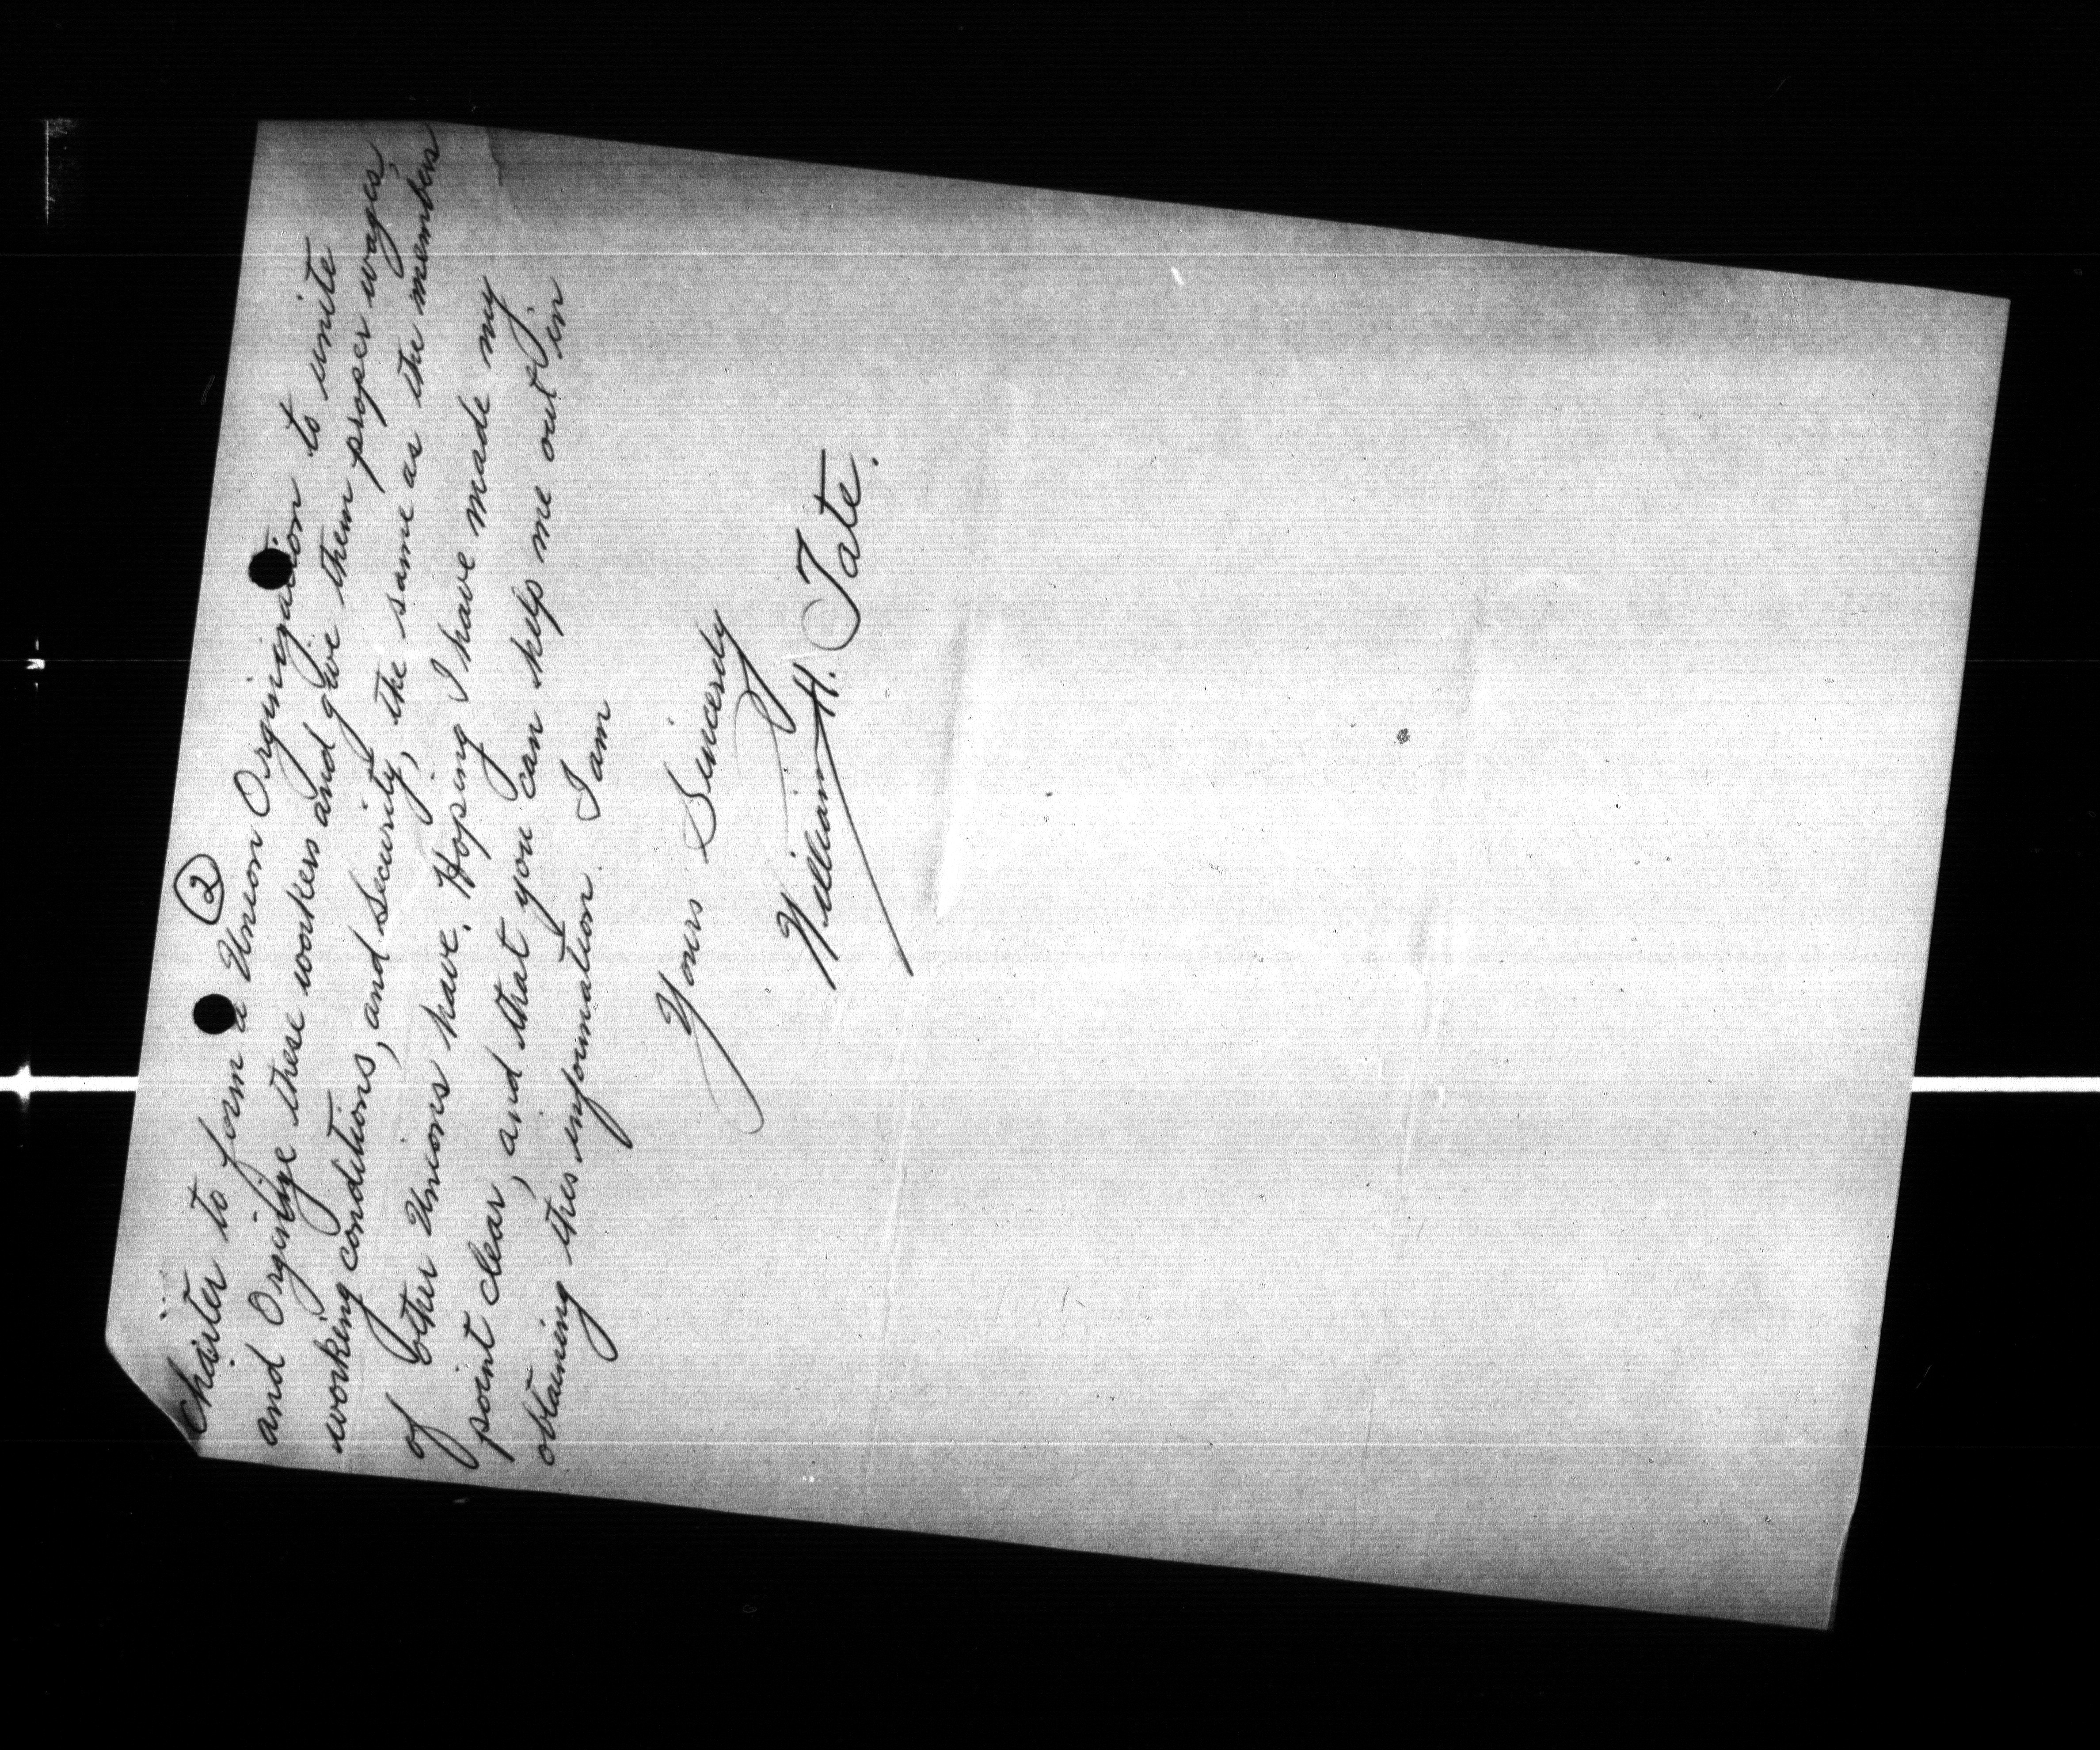 2
charter to form a Union Orginization to unite
and Orginize these workers and give them proper wages,
working conditions, and security, the same as the members
of other Unions have. Hoping I have made my
point clear, and that you can help me out in
obtaining this information. I am
Yours Sincerely
William H. Tate.